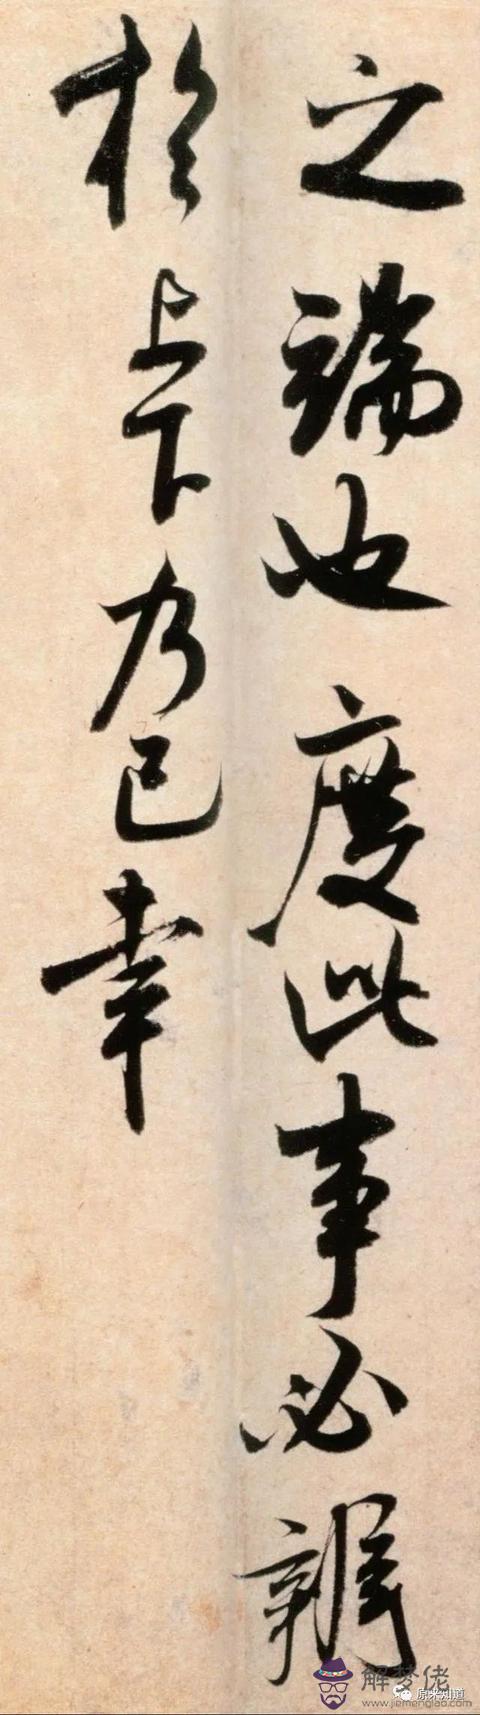 之端也度此事必
於上下乃已幸
解梦佬
www.jiemenglao.com
原来知道